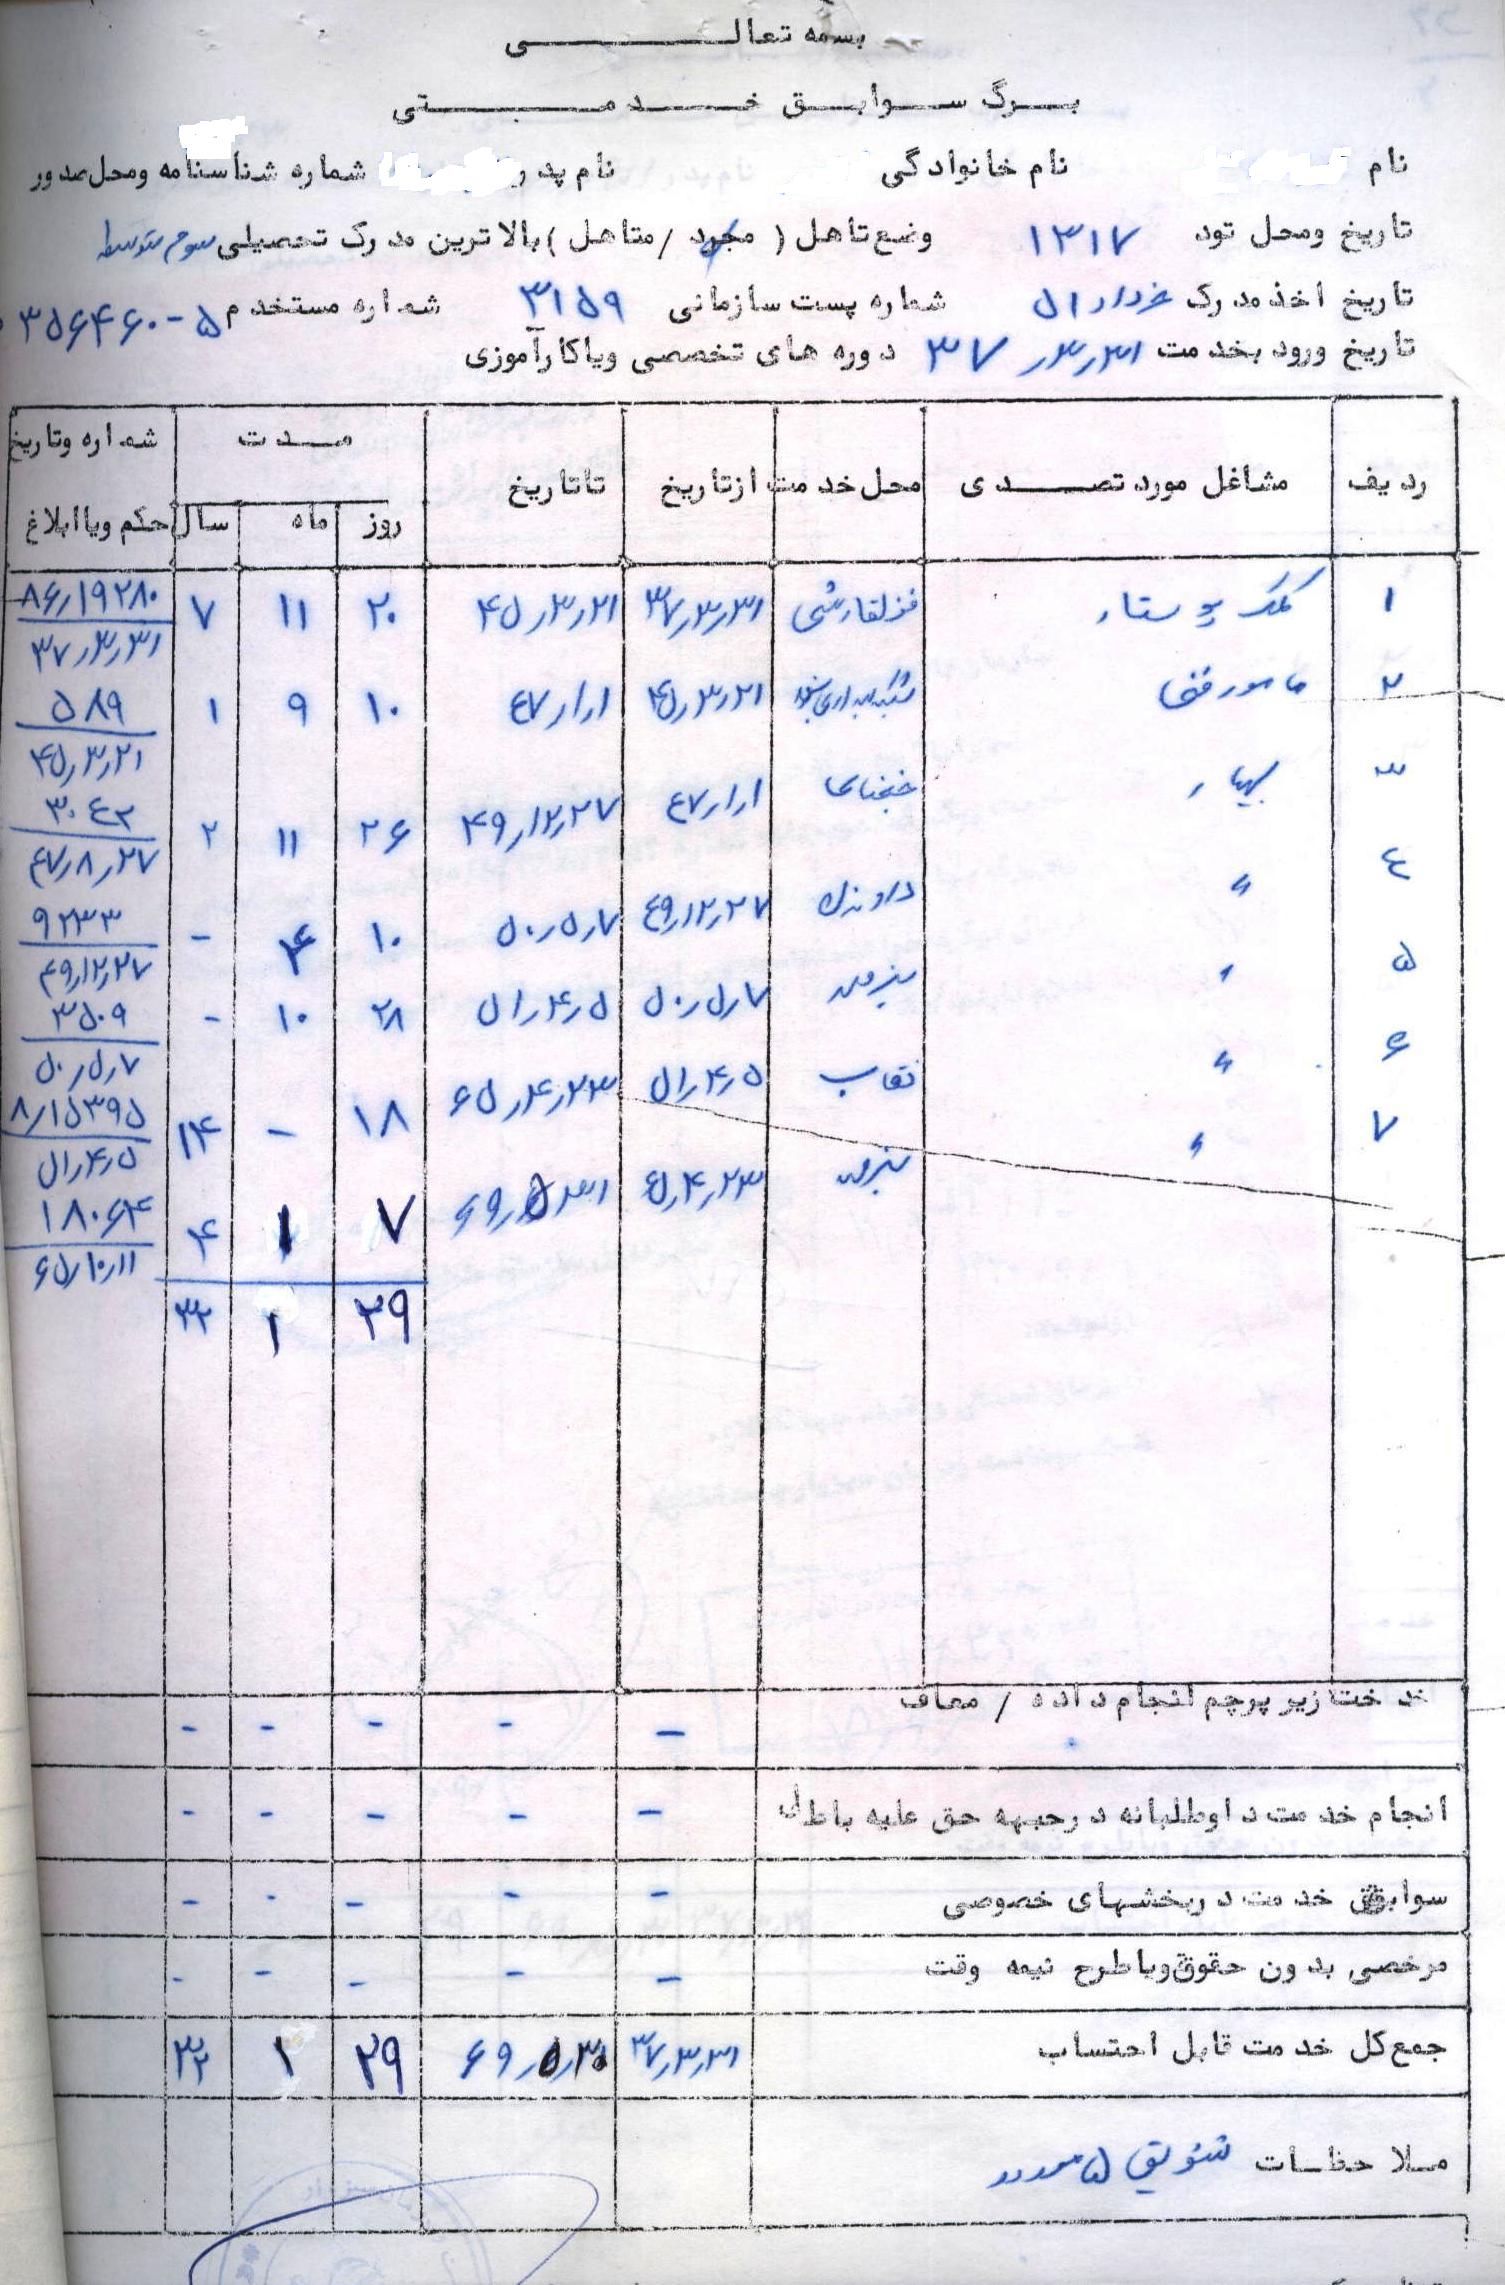 بسمه تعالی
برگ سوابق خدمتی
نام نام خانوادگی نام پدر شماره شناسنامه ومحل صدور
تاریخ ومحل تود ۱۳۱۷ وضع تاهل ( مجرد / متاهل ) بالاترین مدرک تحصیلی سوم متوسطه
تاریخ اخذ مدرک خرداد ۵۱ شماره پست سازمانی ۳۱۵۹ شماره مستخدم ۳۵۶۴۶۰-۵
تاریخ ورود بخدمت ۳۷٫۳٫۳۱ دوره های تخصصی ویاکارآموزی
ردیف مشاغل مورد تصدی محل خدمت ازتاریخ تاتاریخ مدت شماره وتاریخ
روز ماه سال حکم ویا ابلاغ
۱ کمک پرستار قزلقارشی ۳۷٫۳٫۳۱ ۴۵٫۳٫۲۱ ۲۰ ۱۱ ۷ ۸۶٫۱۹۲۸۰
۳۷٫۳٫۳۱
۲ مامور فنی ۴۵٫۳٫۲۱ ۴۷٫۱٫۱ ۱۰ ۹ ۱ ۵۸۹
۴۵٫۳٫۲۱
۳ بهیار ۴۷٫۱٫۱ ۴۹٫۱۲٫۲۷ ۲۶ ۱۱ ۲ ۳۰۴۲
۴۷٫۸٫۲۷
۴ " داورزن ۴۹٫۱۲٫۲۷ ۵۰٫۵٫۷ ۱۰ ۴ - ۹۲۳۳
۴۹٫۱۲٫۲۷
۵ " ۵۰٫۵٫۷ ۵۱٫۴٫۵ ۲۸ ۱۰ - ۳۵۰۹
۵۰٫۵٫۷
۶ " نقاب ۵۱٫۴٫۵ ۶۵٫۴٫۲۳ ۱۸ - ۱۴ ۸٫۱۵۳۹۵
۵۱٫۴٫۵
۷ " ۶۵٫۴٫۲۳ ۶۹٫۵٫۳۱ ۷ ۱ ۴ ۱۸۰۶۴
۶۵٫۱۰٫۱۱
۲۹ ۱ ۳۲
خدمت زیر پرچم انجام داده / معاف - - - - -
انجام خدمت داوطلبانه درجبهه حق علیه باطل - - - - -
سوابق خدمت دربخشهای خصوصی - - - - -
مرخصی بدون حقوق ویاطرح نیمه وقت - - - - -
جمع کل خدمت قابل احتساب ۳۷٫۳٫۳۱ ۶۹٫۵٫۳۰ ۲۹ ۱ ۳۲
ملاحظات تشویق ۵ مورد